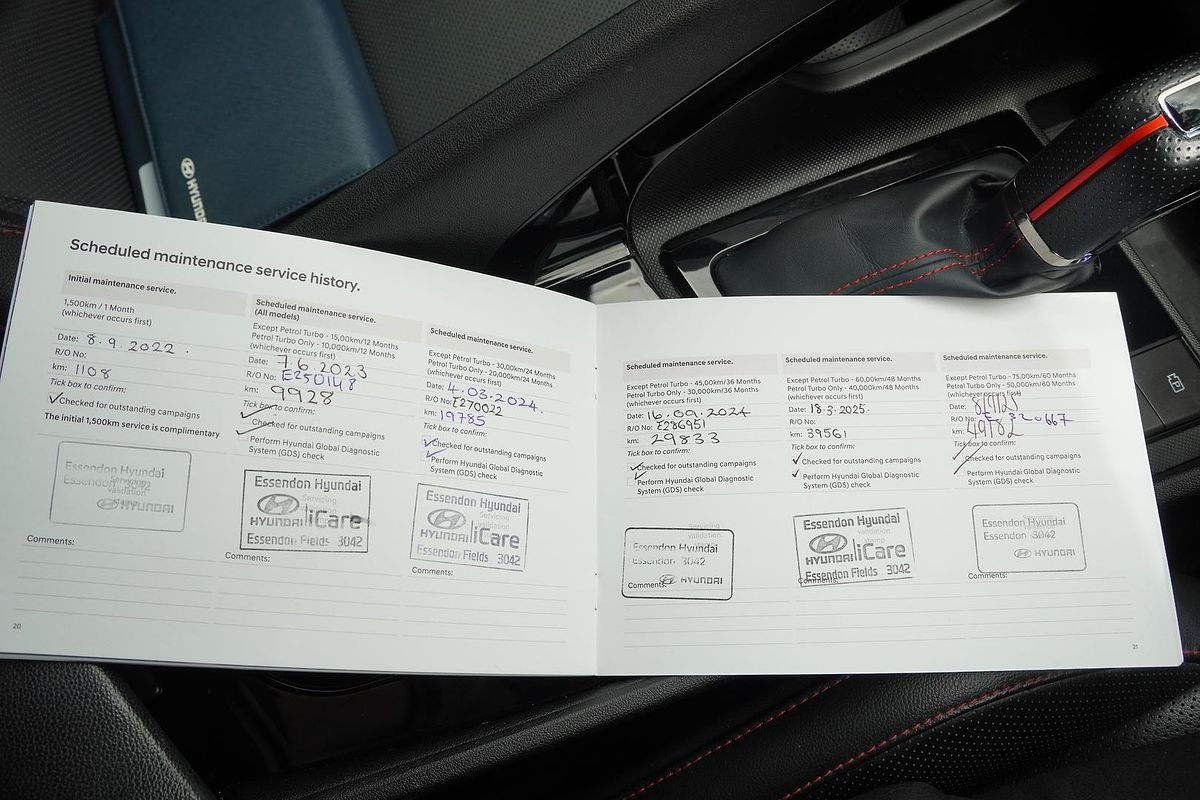 HYUNDAI
Scheduled maintenance service history.
Initial maintenance service.
1,500km / 1 Month
(whichever occurs first)
Date: 8.9.2022.
R/O No:
km: 1108
Tick box to confirm:
Checked for outstanding campaigns
The initial 1,500km service is complimentary
Essendon Hyundai
Servicing
validation
HYUNDAI
Comments:
20
Scheduled maintenance service.
(All models)
Except Petrol Turbo - 15,00km/12 Months
Petrol Turbo Only - 10,000km/12 Months
(whichever occurs first)
Date: 7.6.2023
R/O No: E250148
km: 9928
Tick box to confirm:
Checked for outstanding campaigns
Perform Hyundai Global Diagnostic
System (GDS) check
Essendon Hyundai
Servicing
validation
HYUNDAI iCare
Essendon Fields 3042
Comments:
Scheduled maintenance service.
Except Petrol Turbo - 30,00km/24 Months
Petrol Turbo Only - 20,000km/24 Months
(whichever occurs first)
Date: 4.03.2024.
R/O No: E270022
km: 19785
Tick box to confirm:
Checked for outstanding campaigns
Perform Hyundai Global Diagnostic
System (GDS) check
Essendon Hyundai
Servicing
validation
HYUNDAI iCare
Essendon Fields 3042
Comments:
Scheduled maintenance service.
Except Petrol Turbo - 45,00km/36 Months
Petrol Turbo Only - 30,000km/36 Months
(whichever occurs first)
Date: 16.09.2024
R/O No: E286951
km: 29833
Tick box to confirm:
Checked for outstanding campaigns
Perform Hyundai Global Diagnostic
System (GDS) check
Servicing
validation
Essendon Hyundai
Essendon 3042
HYUNDAI
Comments:
Scheduled maintenance service.
Except Petrol Turbo - 60,00km/48 Months
Petrol Turbo Only - 40,000km/48 Months
(whichever occurs first)
Date: 18.3.2025.
R/O No:
km: 39561
Tick box to confirm:
Checked for outstanding campaigns
Perform Hyundai Global Diagnostic
System (GDS) check
Essendon Hyundai
validation
stamp
HYUNDAI iCare
Essendon Fields 3042
Comments:
Scheduled maintenance service.
Except Petrol Turbo - 75,00km/60 Months
Petrol Turbo Only - 50,000km/60 Months
(whichever occurs first)
Date:
R/O No:
km: 49182
Tick box to confirm:
Checked for outstanding campaigns
Perform Hyundai Global Diagnostic
System (GDS) check
Essendon Hyundai
Essendon 3042
HYUNDAI
Comments:
21